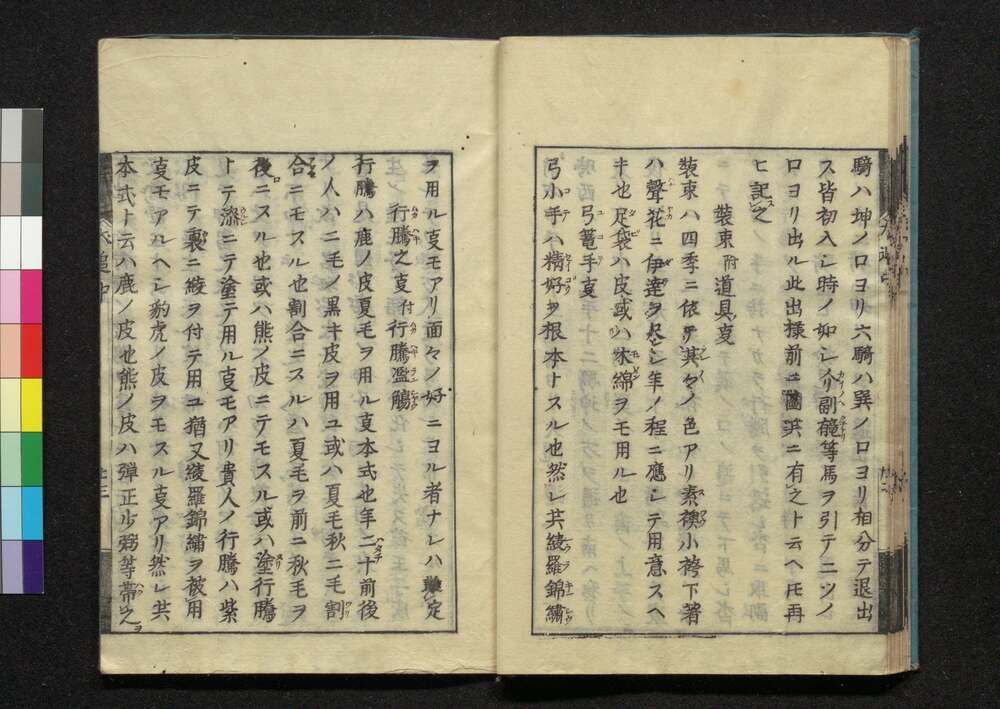 騎ハ坤ノロヨリ六騎ハ巽ノロヨリ相分テ退出
ス皆初入シ時ノ如シ介副等馬ヲ引テ二ツノ
ロヨリ出ル此出様前ニ圖共ニ有之ト云ヘ𪜈再
ヒ記之
装束附道具㕝
装束ハ四季ニ依テ其々ノ色アリ素襖小袴下著
ハ聲花ニ伊達ヲ尽シ年ノ程ニ應シテ用意スヘ
キ也足袋ハ皮或ハ木綿ヲモ用ル也
弓篭手㕝
弓小手ハ精好ヲ根本トスル也然レ共綾羅錦繡
ヲ用ル㕝モアリ面々ノ好ニヨル者ナレハ難定
行騰之㕝付行騰濫觴
行騰ハ鹿ノ皮夏毛ヲ用ル㕝本式也年二十前後
ノ人ハニ毛ノ黒キ皮ヲ用ユ或ハ夏毛秋二毛割
合ニモスル也割合ニスルハ夏毛ヲ前ニ秋毛ヲ
後ニスル也或ハ熊ノ皮ニテモスル或ハ塗行騰
トテ漆ニテ塗テ用ル㕝モアリ貴人ノ行騰ハ紫
皮ニテ裏ニ綾ヲ付テ用ユ猶又綾羅錦繡ヲ被用
㕝モアルヘシ豹虎ノ皮ヲモスル㕝アリ然レ共
本式ト云ハ鹿ノ皮也熊ノ皮ハ弾正少弼等帯之